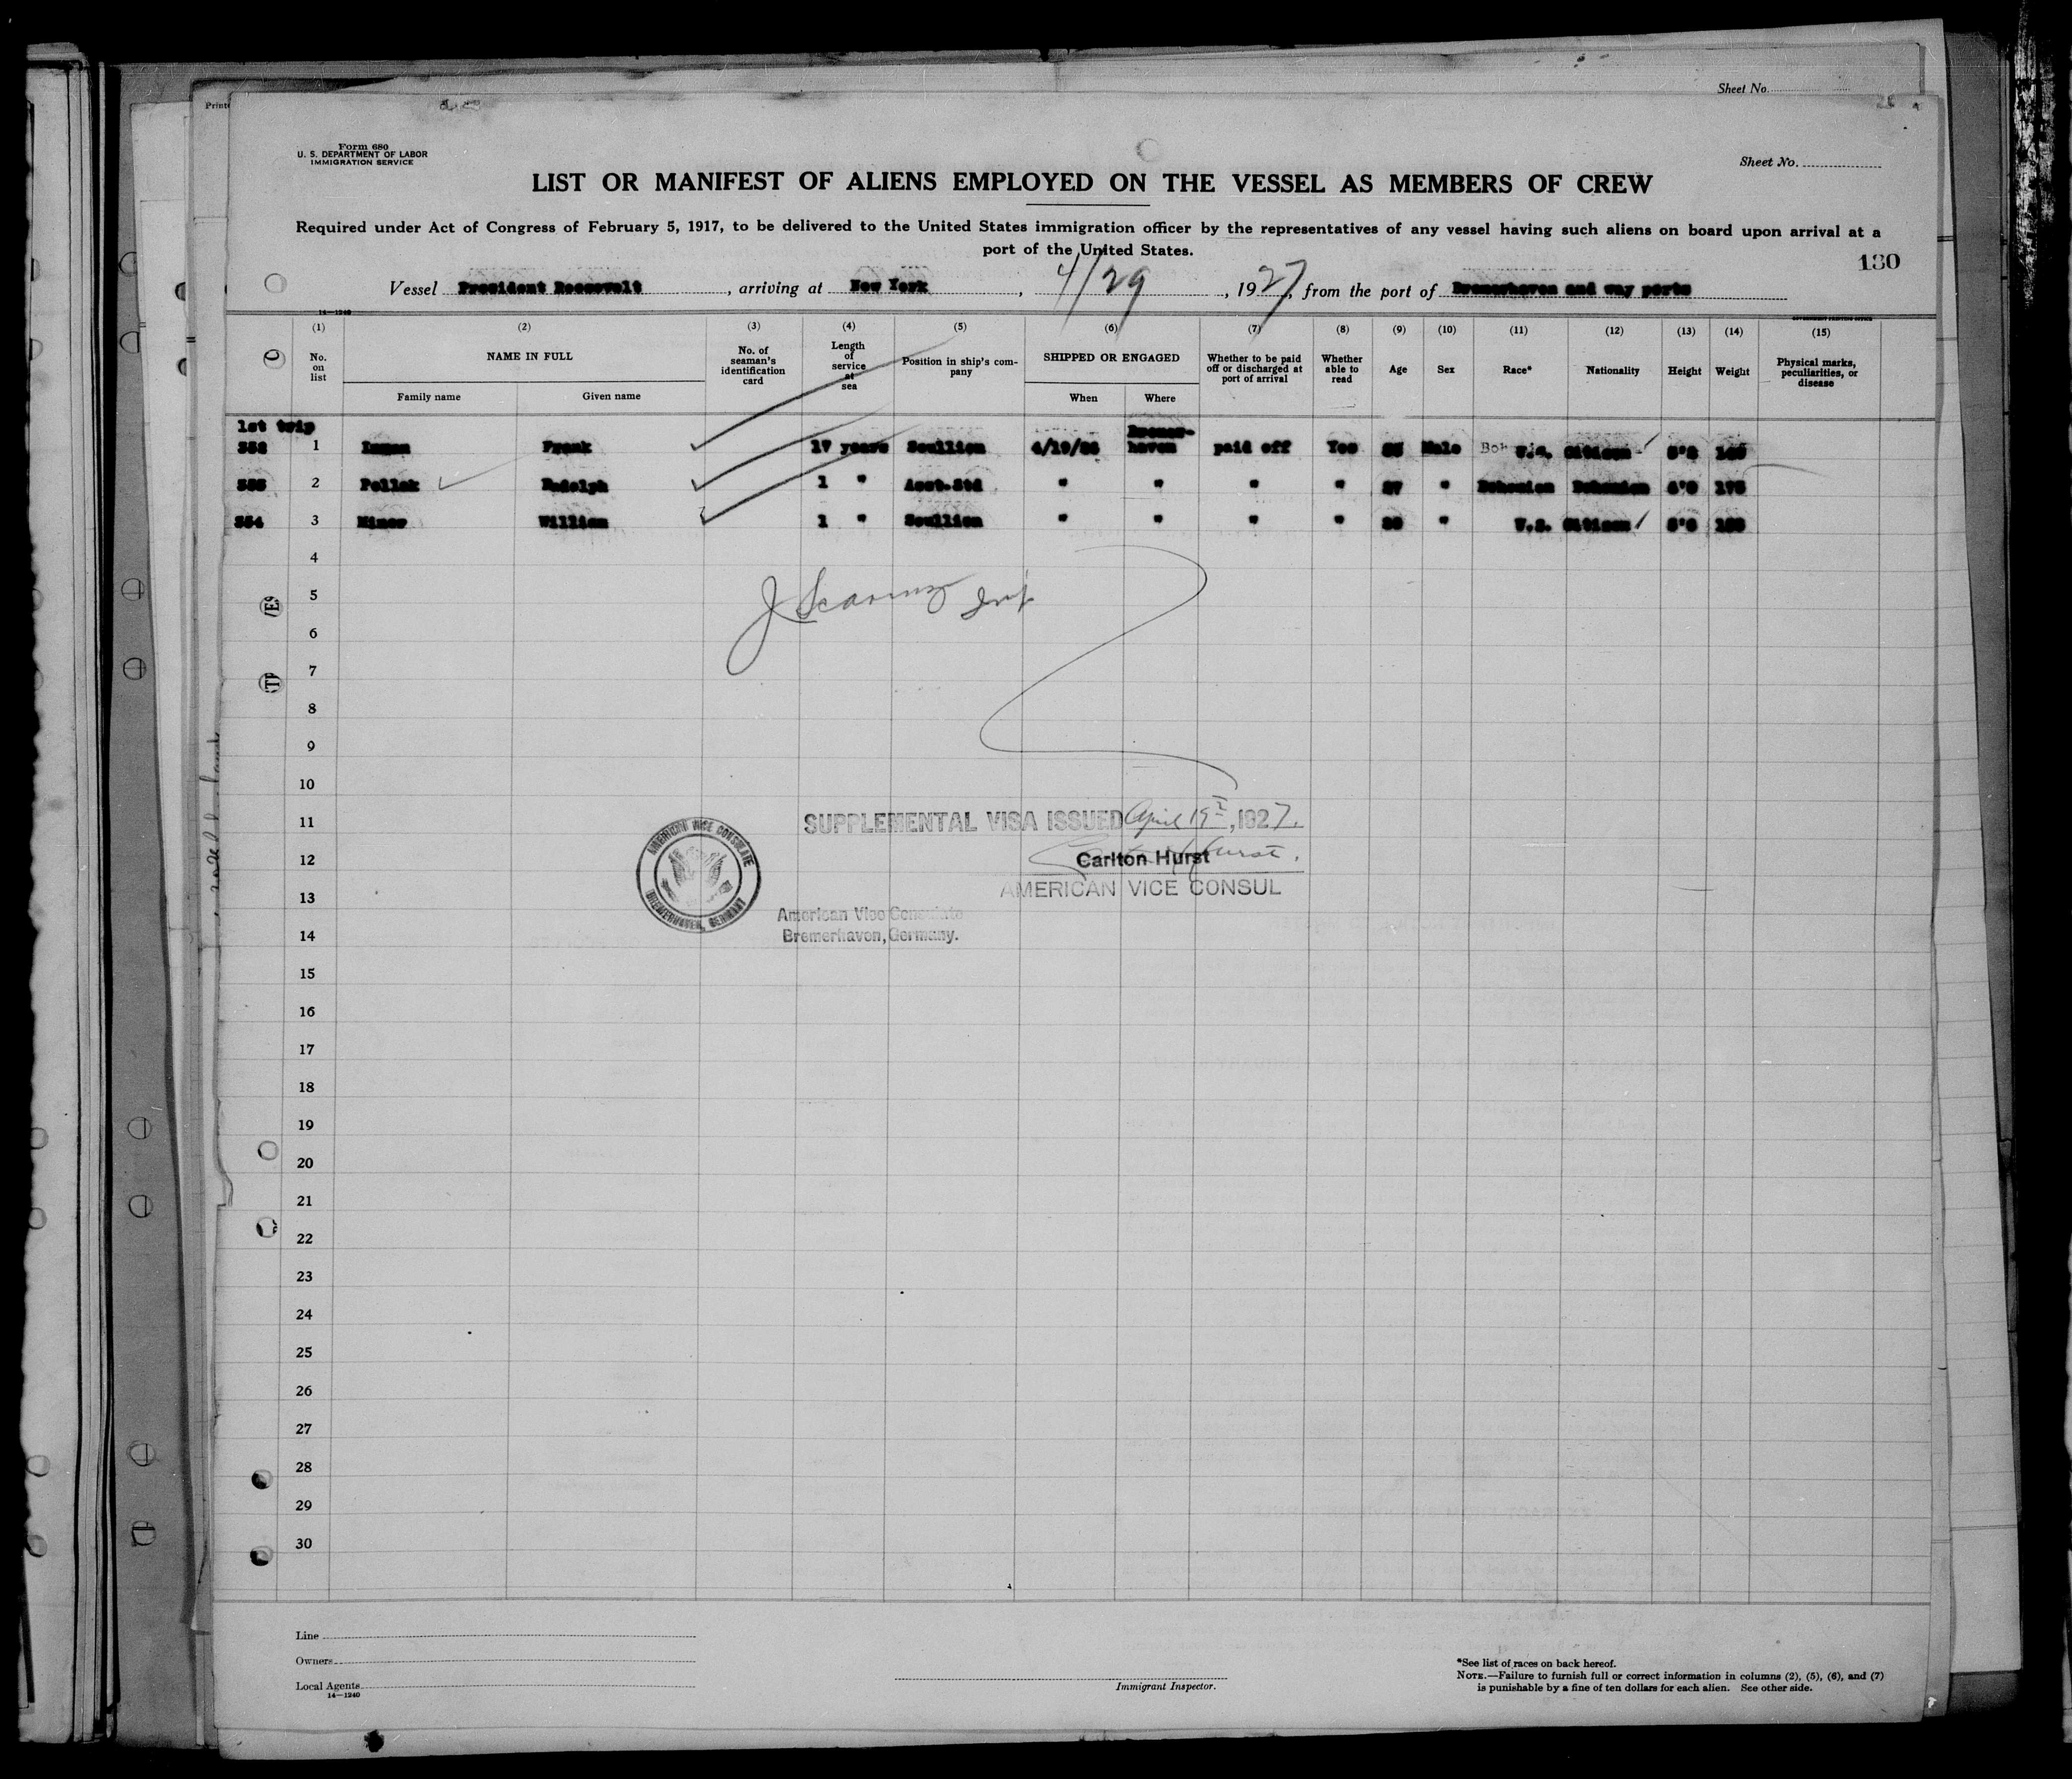 Sheet No.
Form 680
U. S. DEPARTMENT OF LABOR
IMMIGRATION SERVICE
Sheet No.
LIST OR MANIFEST OF ALIENS EMPLOYED ON THE VESSEL AS MEMBERS OF CREW
Required under Act of Congress of February 5, 1917, to be delivered to the United States immigration officer by the representatives of any vessel having such aliens on board upon arrival at a
port of the United States.
130
Vessel President Roosevelt, arriving at New York, 4/29, 1927, from the port of Bremerhaven and way ports
14—1240
(1) (2) (3) (4) (5) (6) (7) (8) (9) (10) (11) (12) (13) (14) (15)
No. on list
NAME IN FULL
Family name
Given name
No. of seaman's identification card
Length of service at sea
Position in ship's company
SHIPPED OR ENGAGED
When
Where
Whether to be paid off or discharged at port of arrival
Whether able to read
Age
Sex
Race*
Nationality
Height
Weight
Physical marks, peculiarities, or disease
1st trip
1 Frank 17 years Scullion Bremerhaven paid off Yes Male U.S. Citizen
2 Pollak Rudolph 1 " Asst.Std " " " " " Bohemian Bohemian
354 3 Miner William 1 " Scullion " " " " " U.S. Citizen
4
5
6
7
8
9
10
11
SUPPLEMENTAL VISA ISSUED April 19, 1927.
12
Carlton Hurst
AMERICAN VICE CONSUL
AMERICAN VICE CONSULATE
BREMERHAVEN, GERMANY
13
American Vice Consulate
Bremerhaven, Germany.
14
15
16
17
18
19
20
21
22
23
24
25
26
27
28
29
30
Line
Owners
Local Agents
14—1240
Immigrant Inspector.
*See list of races on back hereof.
NOTE.—Failure to furnish full or correct information in columns (2), (5), (6), and (7)
is punishable by a fine of ten dollars for each alien. See other side.